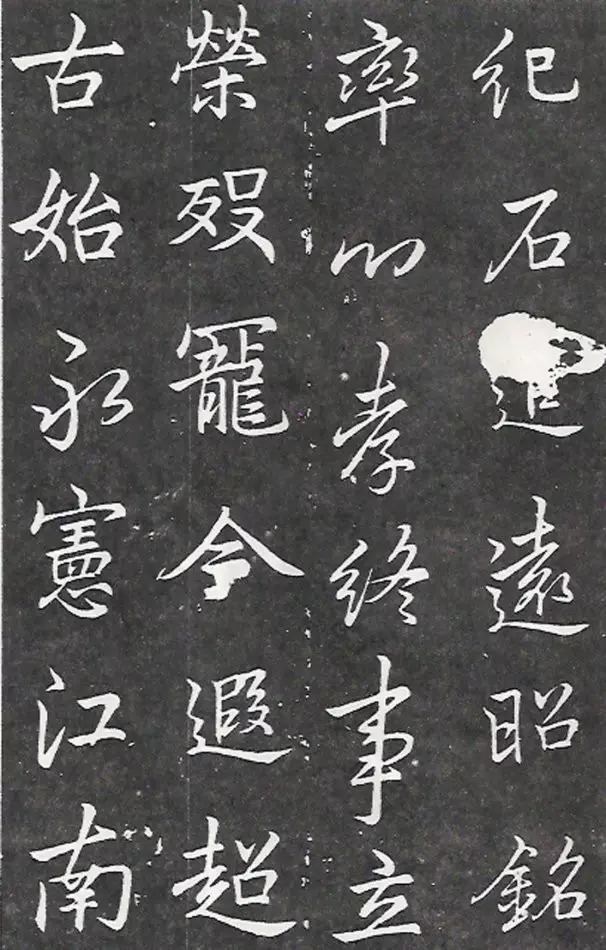 紀石追遠昭銘
率心孝終事立
榮歿寵令遐超
古始永憲江南